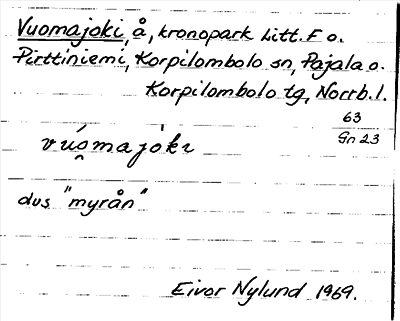 Vuomajoki, å, kronopark Litt. F o.
Pirttiniemi, Korpilombolo sn, Pajala o.
Korpilombolo tg, Norrb. l.
63
Gn 23
vúo̯majòki
dvs "myrån"
Eivor Nylund 1969.